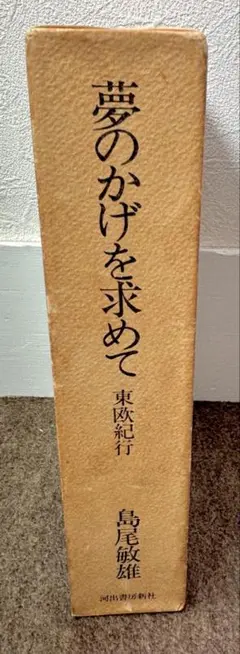 夢のかげを求めて
東欧紀行
島尾敏雄
河出書房新社